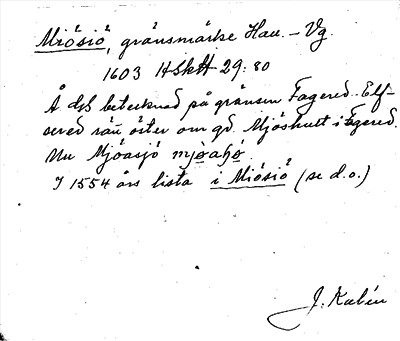 Miösiö, gränsmärke Hall. – Vg.
1603 HSkH 29:80
Å dgs betecknad på gränsen Fagered-Elf-
sered rätt öster om gd. Mjöshult i Fagered.
Nu Mjöasjö mjøahø.
I 1554 års lista i Miösiö (se d.o.)
J. Kalén